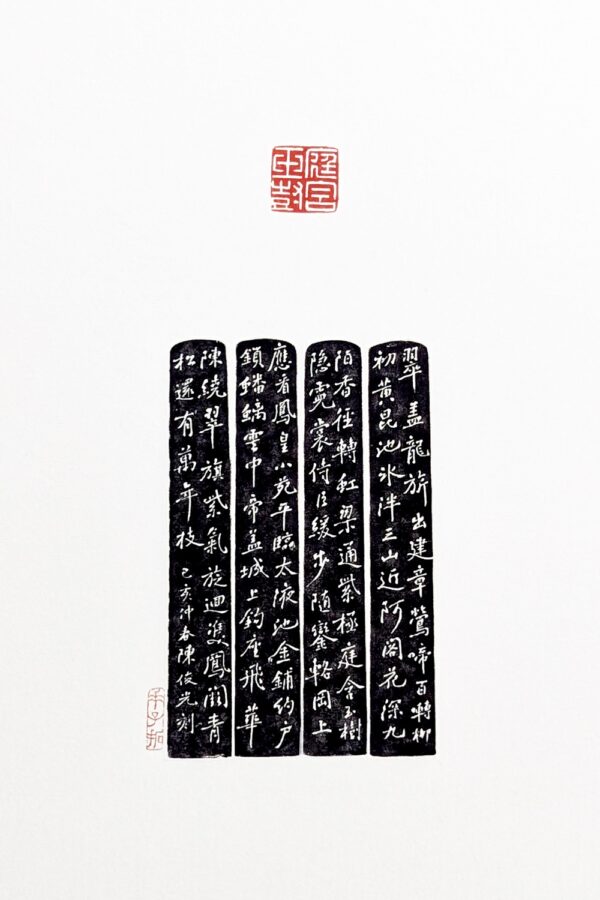 庭含玉樹
翠盖龍旂出建章鶯啼百囀柳
初黄昆池冰泮三山近阿閣花深九
陌香徑轉虹梁通紫極庭含玉樹
隐霓裳侍臣緩步随鑾輅岡上
應看鳳皇小苑平臨太液池金鋪約户
鎖蟠螭雲中帝盖城上鈎座飛華
陳繞翠旗紫氣旋迴雙鳳闕青
松還有萬年枝 己亥仲春陳俊光刻